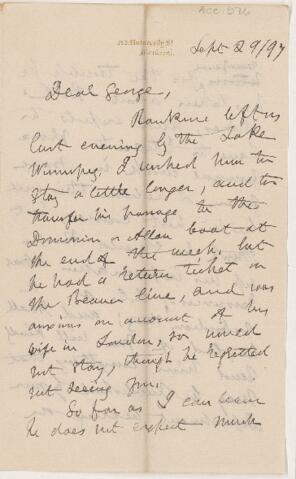 ACC. 576
University St
Montreal.
Sept 29/97
Dear George,
Rankine left us
last evening by the Lake
Winnipeg. I wished him to
stay a little longer, and to
transfer his passage to the
Dominion or Allan boat at
the end of the week, but
he had a return ticket on
the Beaver line, and was
anxious on account of his
wife in London, so would
not stay, though he regretted
not seeing you.
So far as I can learn
he does not expect much